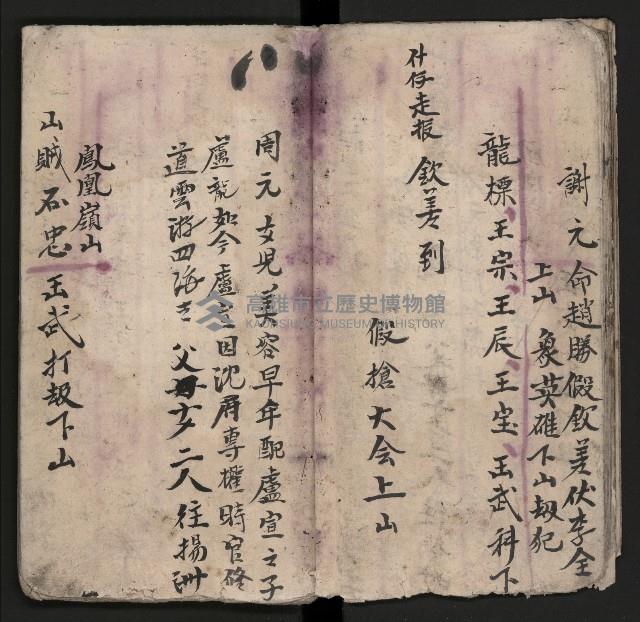 謝元命趙勝假欽差伏李全
上山 衆英雄下山刼犯
龍標、王宗、王辰、王宝、王武科下
假搶大会上山
什仔走报 欽差到
周元女児美容早年配盧宣之子
盧龍如今盧宣因沈府專權時官修
道雲游四海去 父女二人往揚州
鳳凰嶺山
山賊石忠 王武打刼下山
高雄市立歷史博物館
KAOHSIUNG MUSEUM OF HISTORY